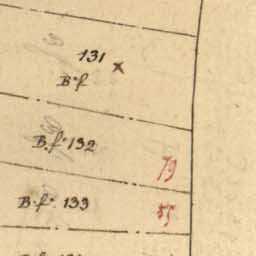 131 x
B.f
B.f. 132
79
B.f. 133
55